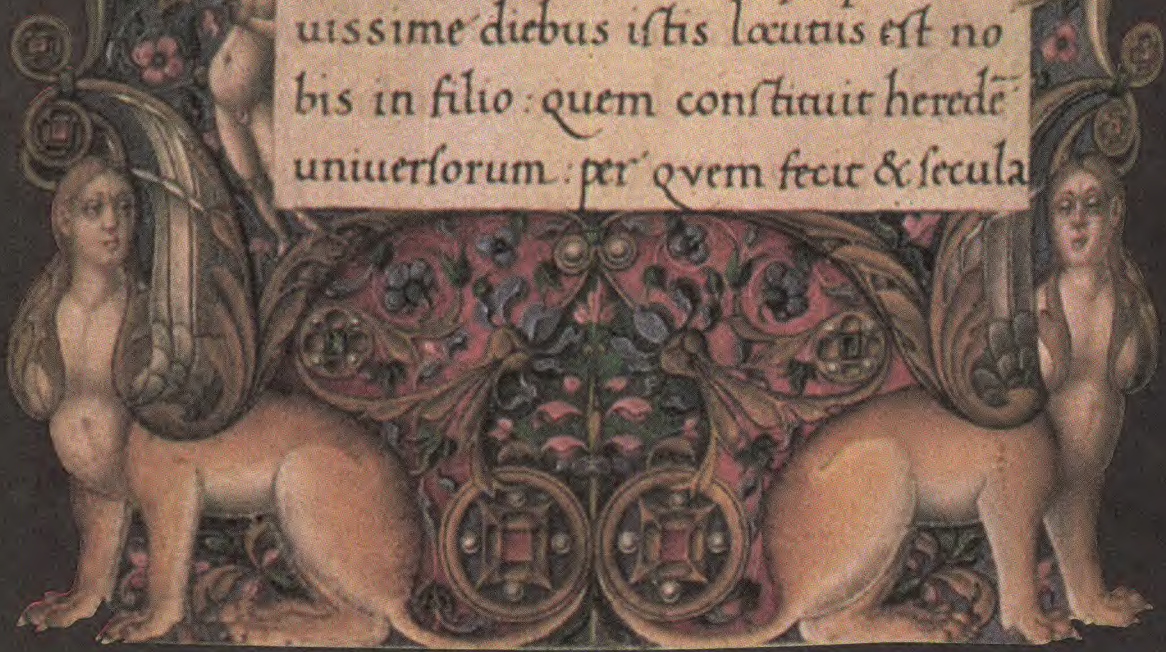 uissime diebus iſtis locutus eſt no
bis in filio : quem conſtituit heredē
uniuerſorum : per quem fecit & ſecula